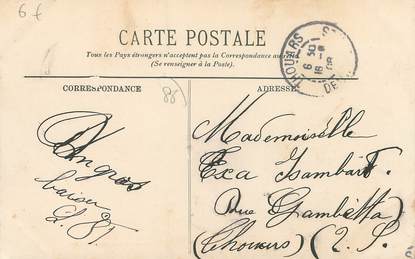 6 €
CARTE POSTALE
Tous les Pays étrangers n'acceptent pas la Correspondance au
(Se renseigner à la Poste).
THOUARS
CORRESPONDANCE
ADRESSE
86
Un gros
baiser
Mademoiselle
Exa Isambart
Rue Gambetta
Thouars (2. S.